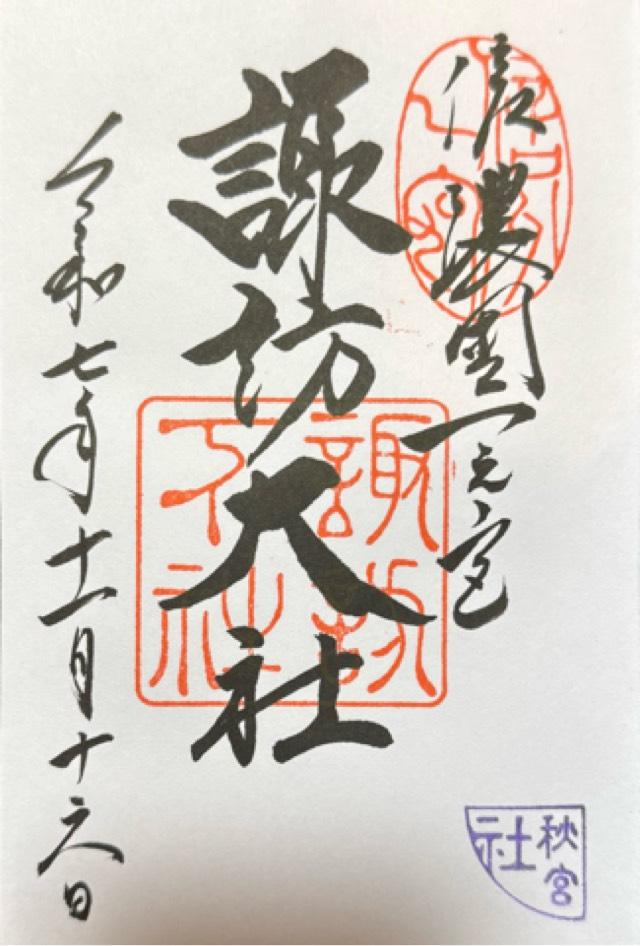 信濃國一之宮
諏訪大社
諏訪
下社
令和七年十一月十六日
秋宮
社